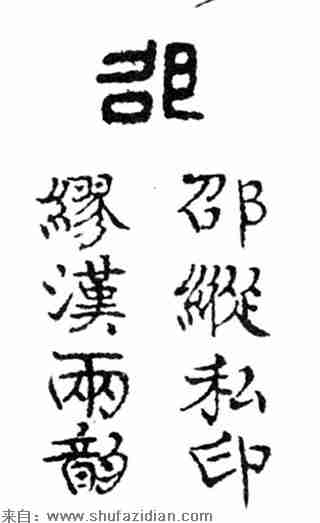 邵
邵縱私印
繆漢兩韵
来自:www.shufazidian.com